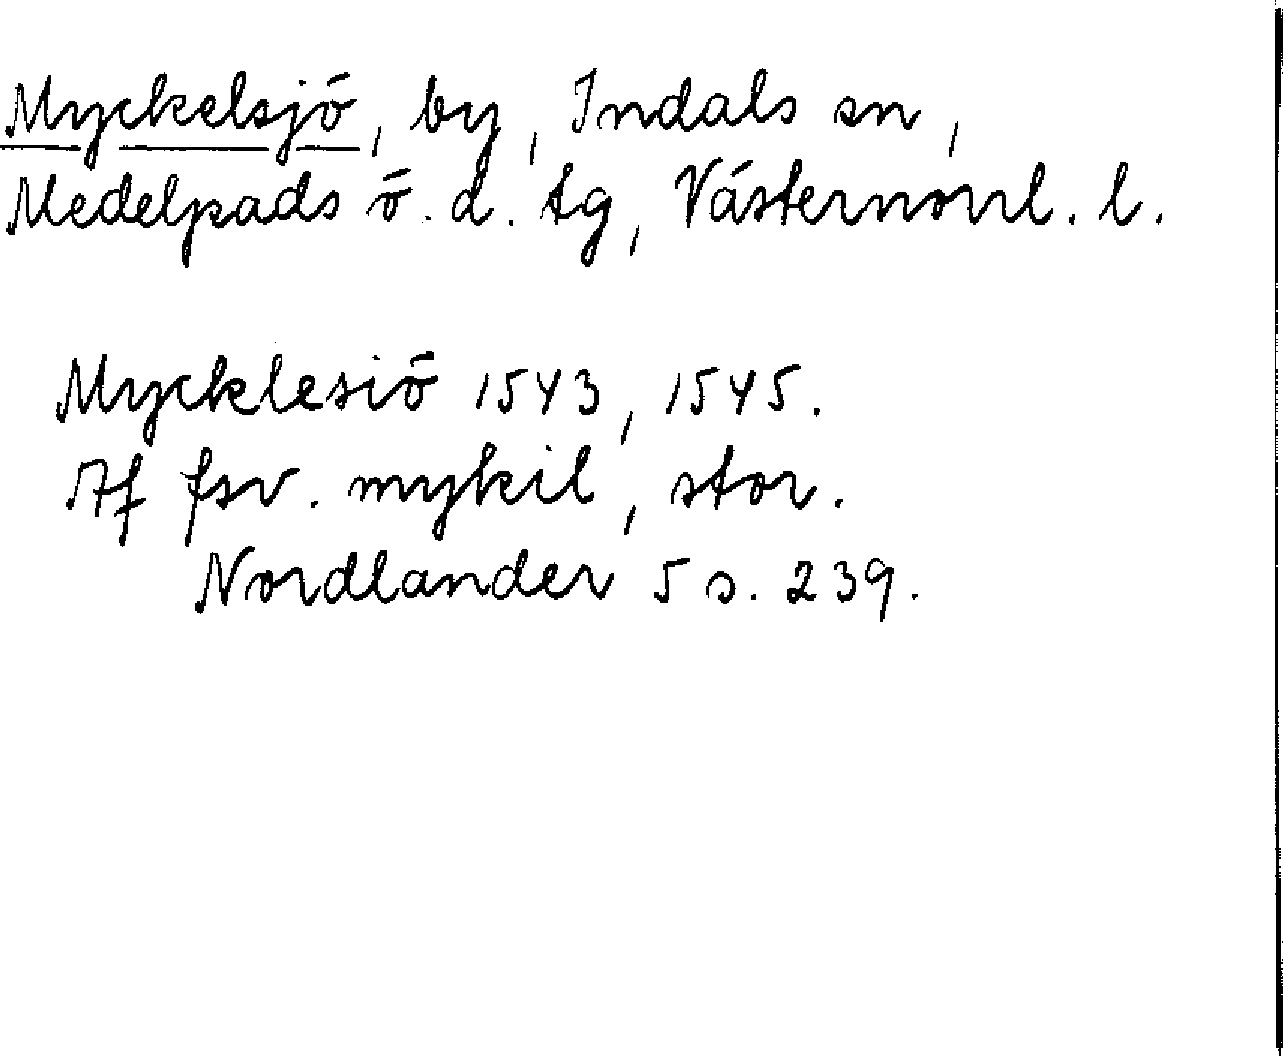 Myckelsjö, by, Indals sn,
Medelpads ö. d. tg, Västernorrl. l.
Mycklesiö 1543, 1545.
Af fsv. mykil, stor.
Nordlander 5 s. 239.